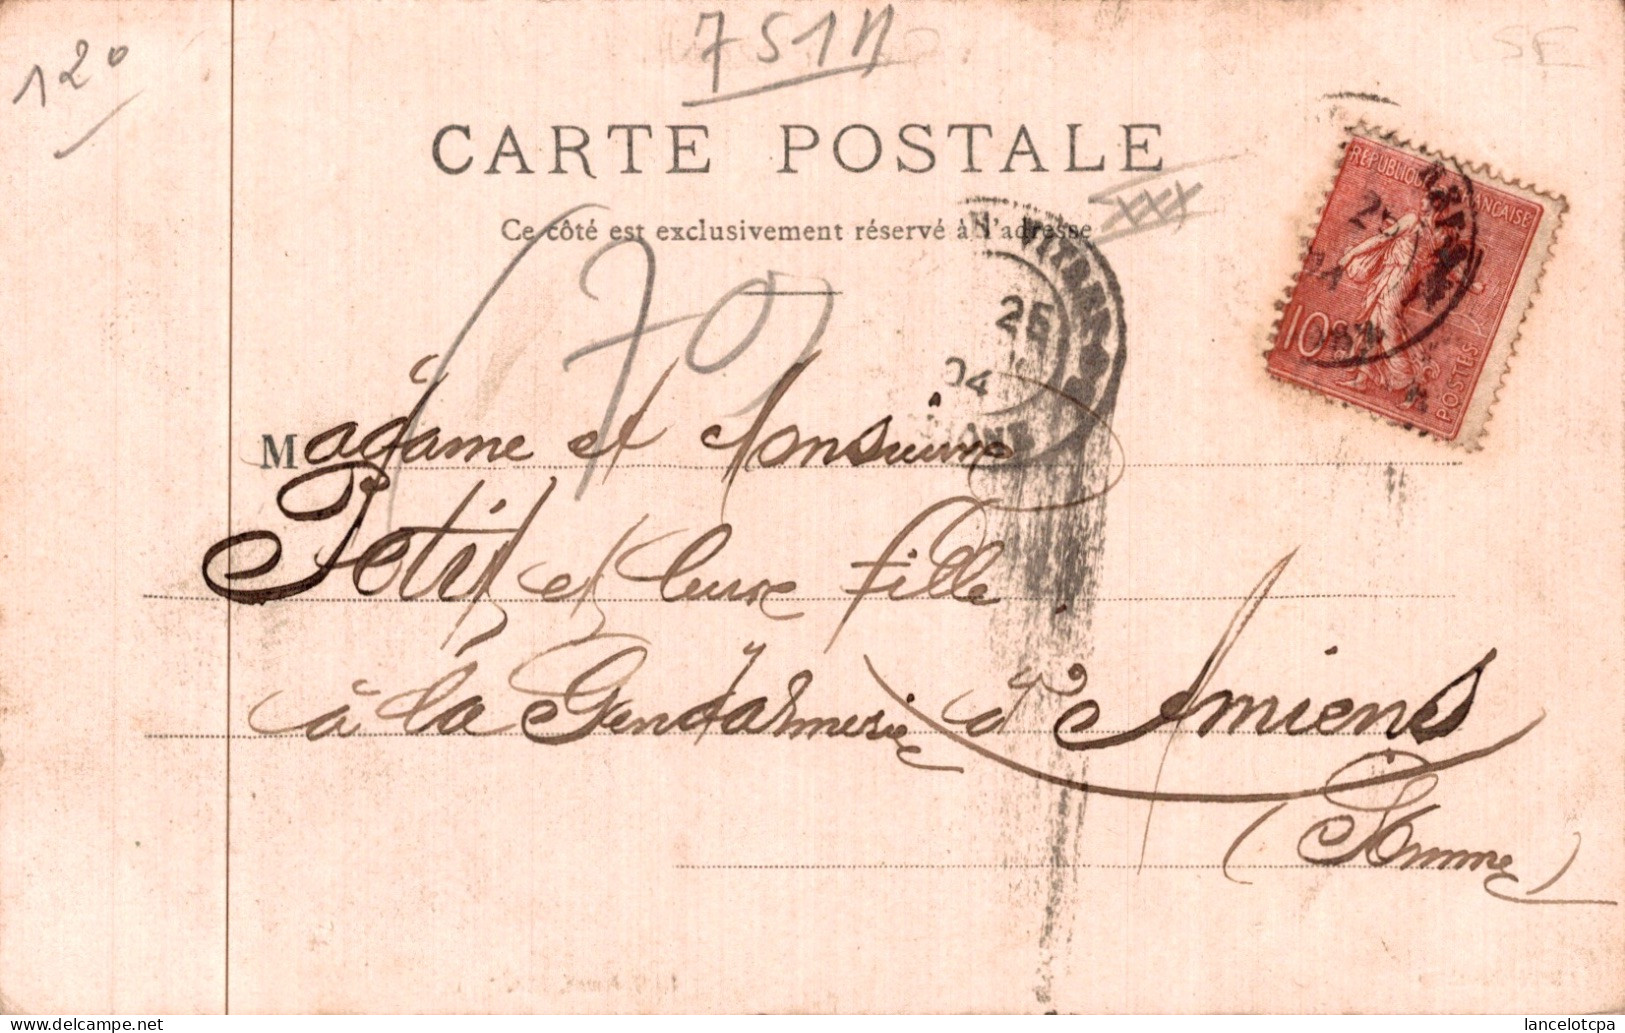 120
751N
SE
CARTE POSTALE
Ce côté est exclusivement réservé à l'adresse
RÉPUBLIQUE FRANÇAISE
10
POSTES
25
04
70
Madame et Monsieure
Petit et leure fille
à la Gendarmerie d'Amiens
(Somme)
lancelotcpa